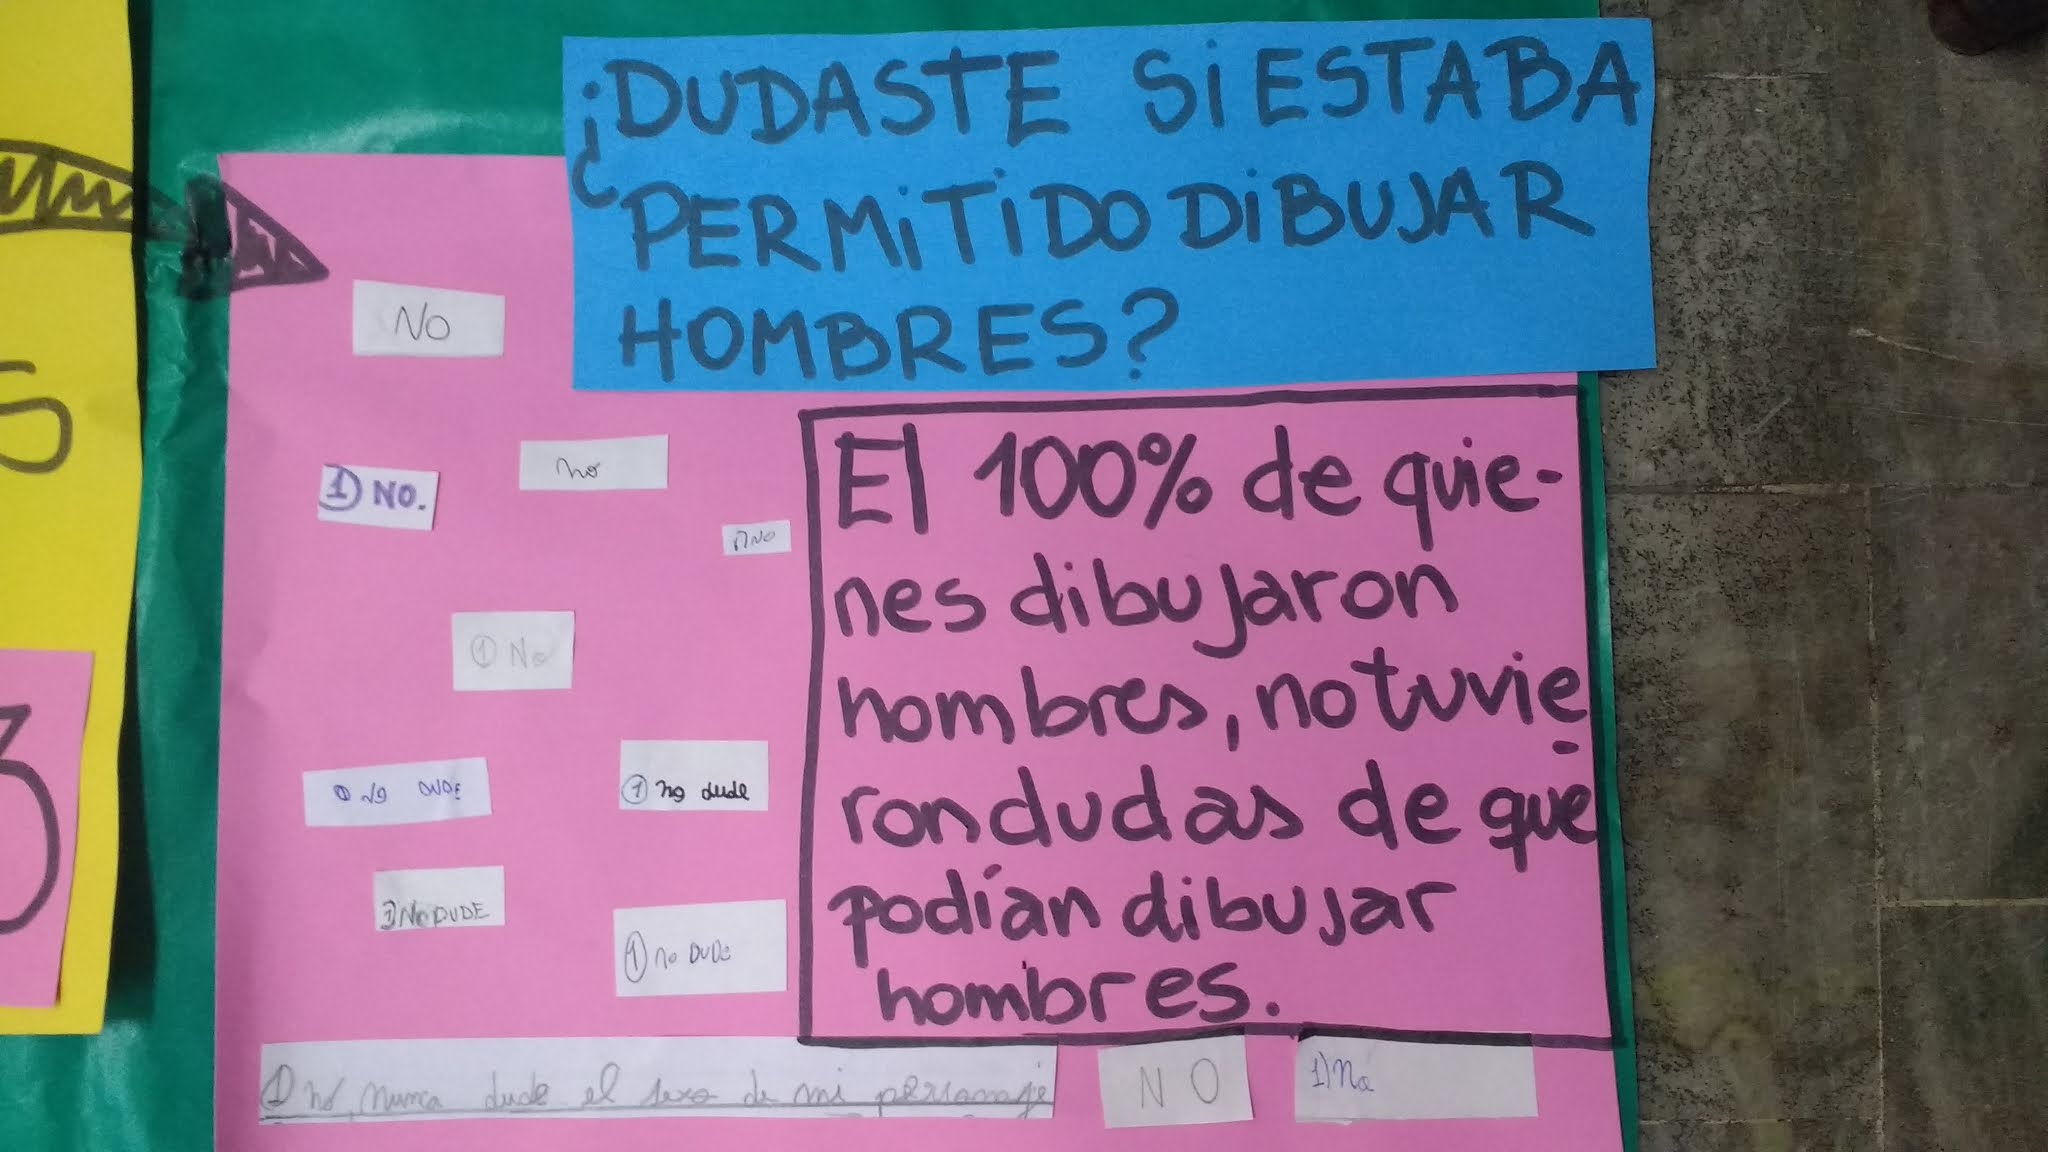 ¿DUDASTE SI ESTABA
PERMITIDO DIBUJAR
HOMBRES?
NO
1) NO.
no
1) NO
1 No
El 100% de quie-
nes dibujaron
hombres, no tuvie-
ron dudas de que
podían dibujar
hombres.
1 NO DUDE
1 no dude
1) No DUDE
1 no DUDE
1 no, nunca dude el sexo de mi personaje
NO
1) No
S
3